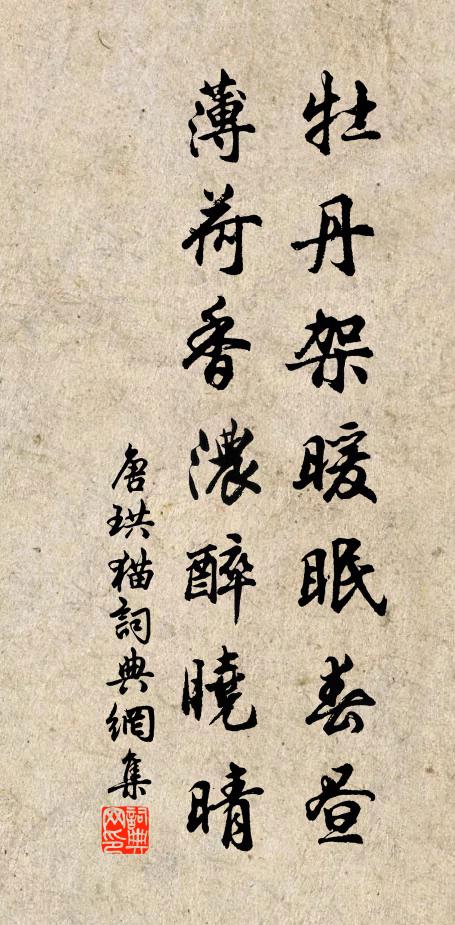 牡丹架暖眠春昼
薄荷香濃醉曉晴
唐珙猫詞典網集
詞典网印